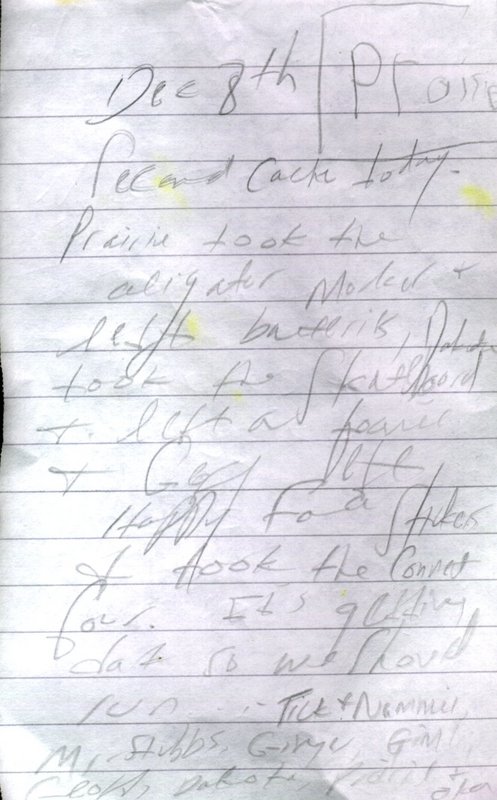 Dec 8th | Prairie
Second Cache today.
Prairie took the
aligator Marker +
left batteris, Dakota
took the Skateboard
+ left a
+ Geo left
Happy Food Stickers
I took the Connect
Four. It's getting
dark so we should
run ... Tick + Nammie,
Mr Stubbs, Ginger,
Geoff, Dakota, Prairie +